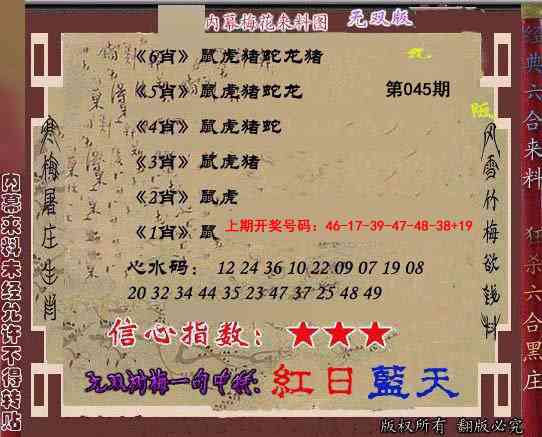 内幕梅花来料图 无双版
《6肖》鼠虎猪蛇龙猪
《5肖》鼠虎猪蛇龙 第045期
《4肖》鼠虎猪蛇
《3肖》鼠虎猪
《2肖》鼠虎
《1肖》鼠
上期开奖号码：46-17-39-47-48-38+19
心水码： 12 24 36 10 22 09 07 19 08
20 32 34 44 35 23 47 37 25 48 49
信心指数：★★★
红日蓝天
版权所有 翻版必究
寒梅屠庄生肖
风雪竹梅欲钱料
内幕来料未经允许不得转贴
经典六合来料
狂杀六合黑庄